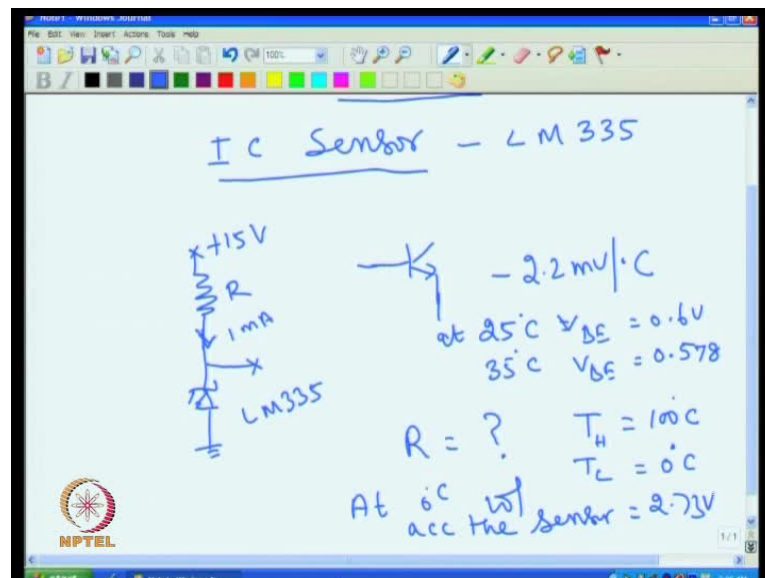 Note1 - Windows Journal
File Edit View Insert Actions Tools Help
100%
B I
IC Sensor - LM335
+15V
R
1mA
LM335
-2.2mV/°C
at 25°C VBE = 0.6V
35°C VBE = 0.578
R = ?
TH = 100°C
TC = 0°C
At 0°C vol
acc the Sensor = 2.73V
NPTEL
1/1
start